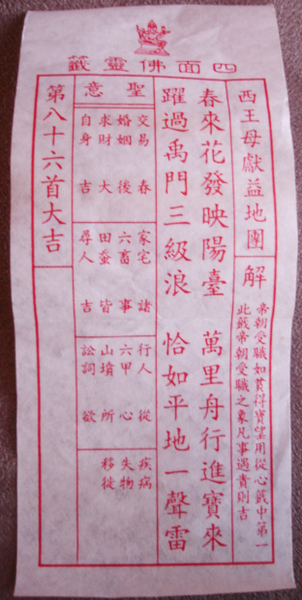 四面佛靈籤
西王母獻益地圖
解
帝朝受職如貧得寶望用從心籤中第一
此籤帝朝受職之象凡事遇貴則吉
春來花發映陽臺 萬里舟行進寶來
躍過禹門三級浪 恰如平地一聲雷
聖意
交易 春
婚姻 後
求財 大
自身 吉
家宅 諸
六畜 事
田蚕 皆
尋人 吉
行人 從
六甲 心
山墳 所
訟詞 欲
疾病
失物
移徙
第八十六首大吉